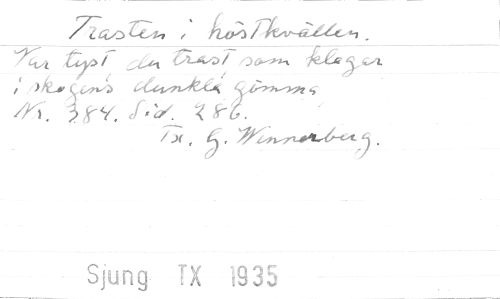 Trasten i höstkvällen.
Var tyst du trast som klagar
i skogens dunkla gömma
Nr. 384. Sid. 286.
Tx. G. Wennerberg.
Sjung TX 1935